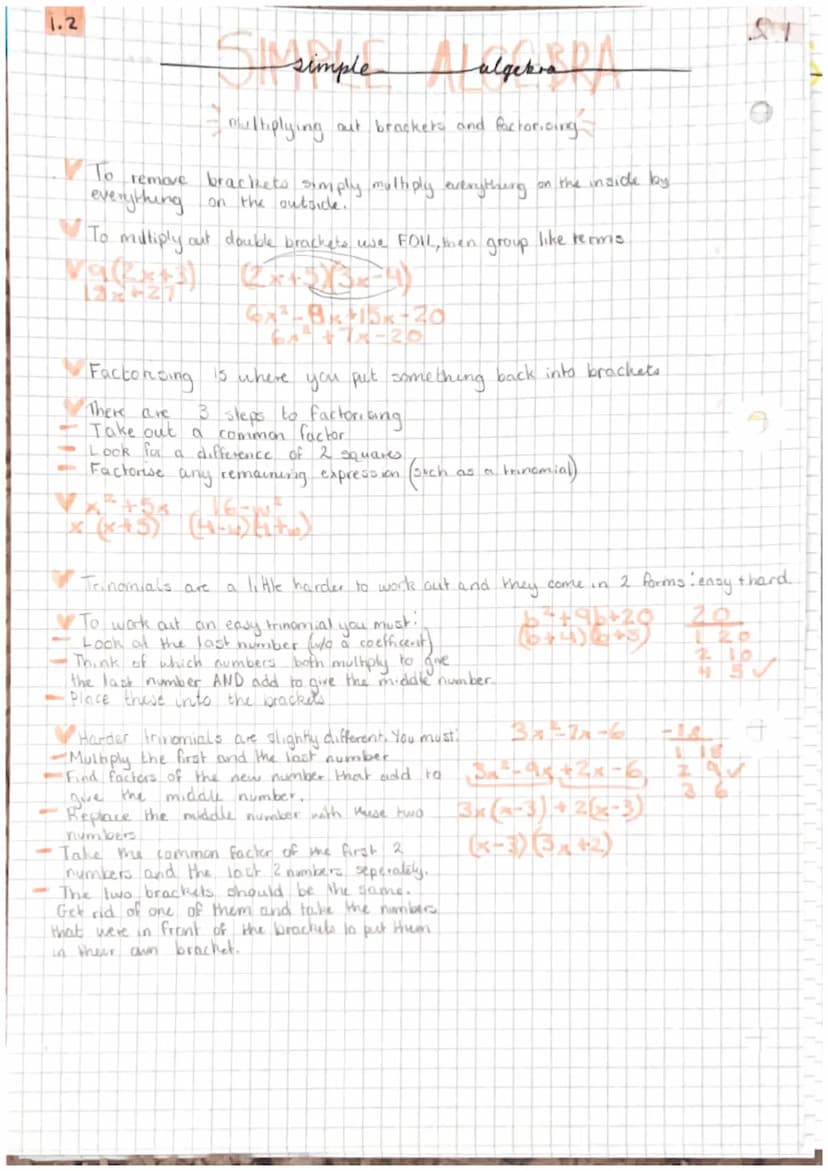 1.2
SIMPLE ALGEBRA
simple algebra
multiplying out brackets and factorising
To remove brackets simply multiply everything on the inside by
everything on the outside.
To multiply out double brackets use FOIL, then group like terms
9(2x+3) (2x+5)(3x-4)
18x+27
6x²-8x+15x-20
6x²+7x-20
Factorising is where you put something back into brackets
There are 3 steps to factorising
- Take out a common factor
- Look for a difference of 2 squares
- Factorise any remaining expression (such as a trinomial)
x²+5x 16-w²
x(x+5) (4-w)(4+w)
Trinomials are a little harder to work out and they come in 2 forms: easy + hard.
To work out an easy trinomial you must:
- Look at the last number (w/o a coefficent)
- Think of which numbers both multiply to give
the last number AND add to give the middle number.
- Place these into the brackets
b²+9b+20 20
(b+4)(b+5) 1 20
2 10
4 5 ✓
Harder trinomials are slighty different. You must:
- Multiply the first and the last number
- Find factors of the new number that add to
give the middle number.
- Replace the middle number with these two
numbers
- Take the common factor of the first 2
numbers and the last 2 numbers seperately.
- The two brackets should be the same.
Get rid of one of them and take the numbers
that were in front of the brackets to put them
in their own bracket.
3x²-7x-6 -18
1 18
3x²-9x+2x-6 2 9 ✓
3 6
3x(x-3)+2(x-3)
(x-3)(3x+2)